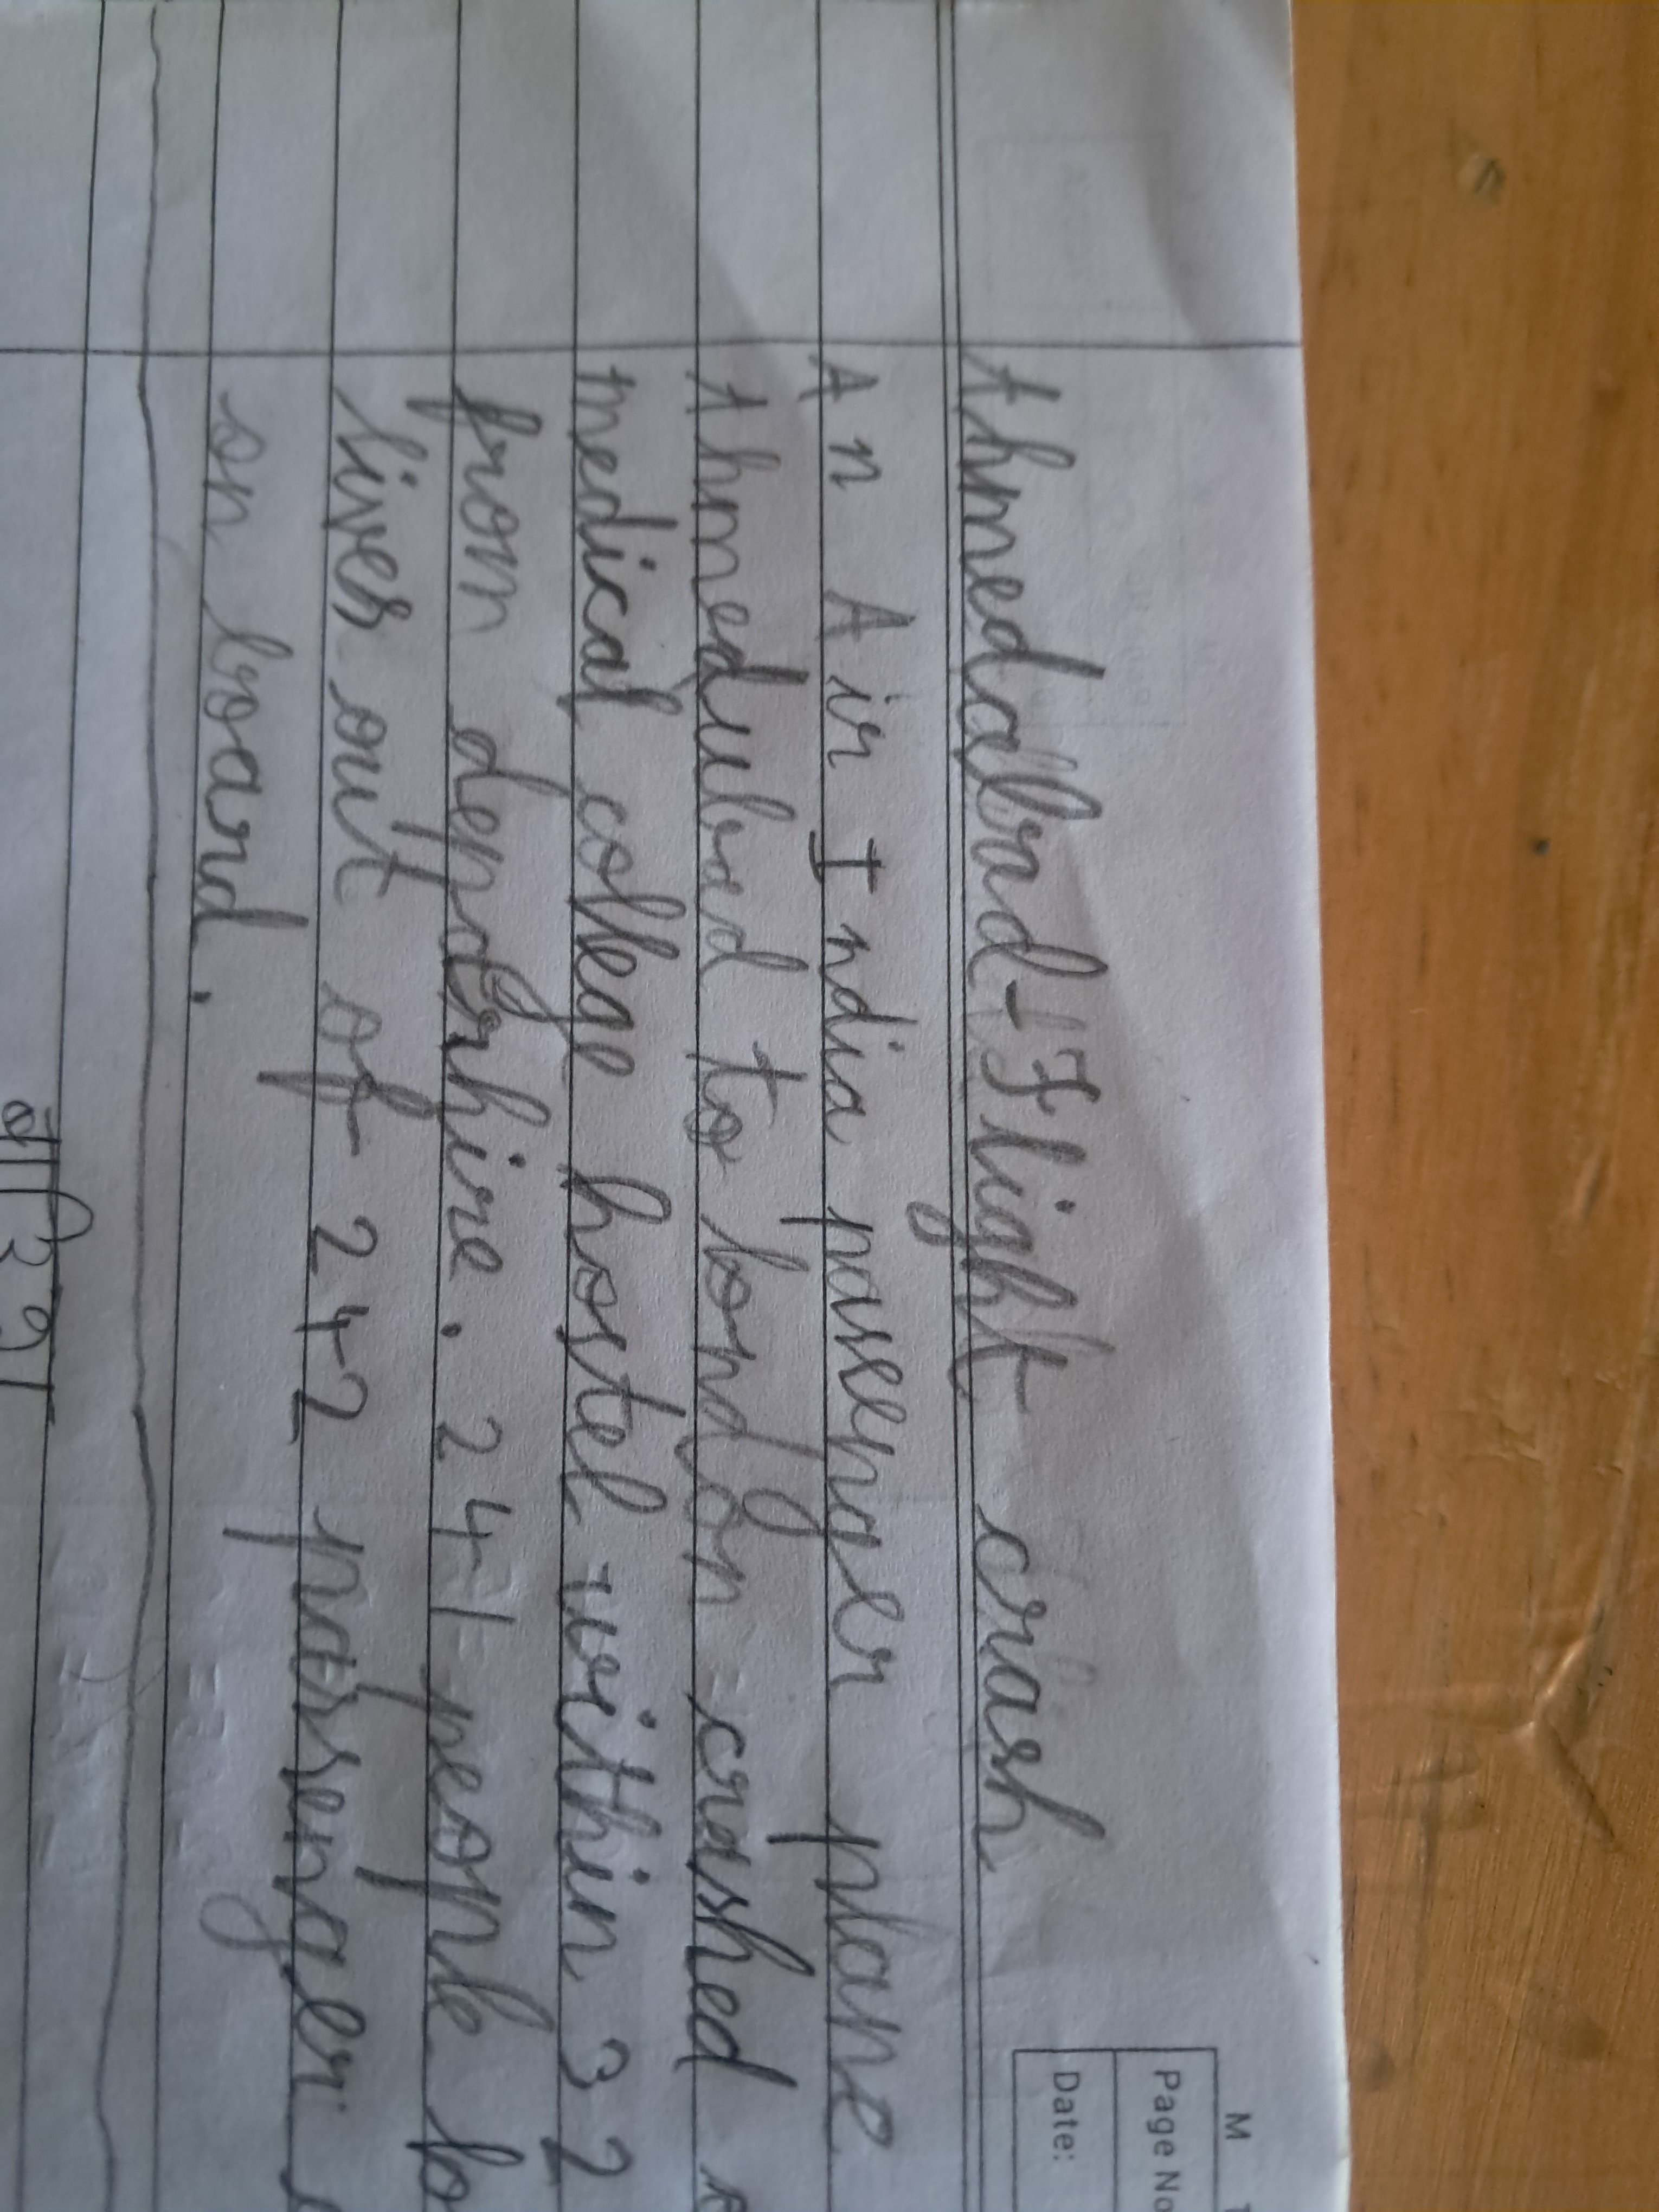 M
Page No
Date:
Ahmedabad-Flight crash
An Air India passenger plane
Ahmedubad to london crashed
medical college hostel within 32
from depdrhire. 241 people lo
liver out of 242 passenger
on board.